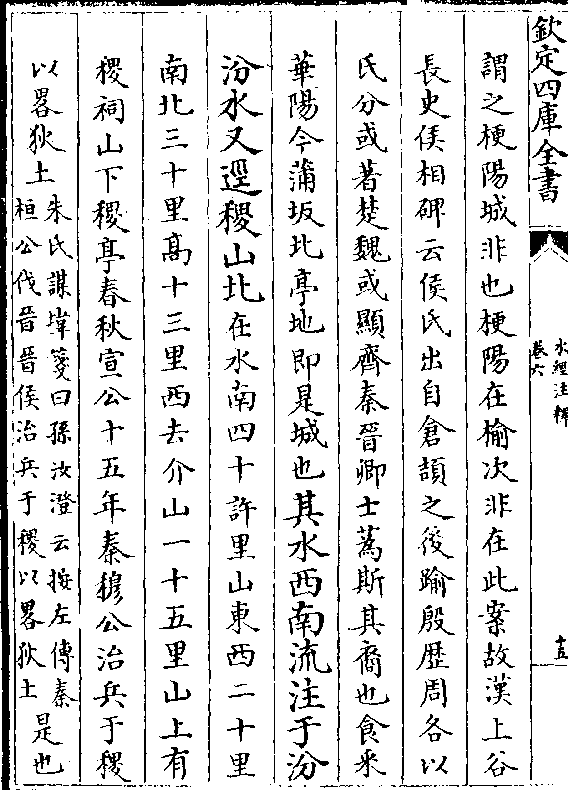 欽定四庫全書
水經注釋
卷六
十五
謂之梗陽城非也梗陽在榆次非在此案故漢上谷
長史侯相碑云侯氏出自倉頡之後踰殷歷周各以
氏分或著楚魏或顯齊秦晉卿士蒍斯其裔也食采
華陽今蒲坂北亭地即是城也其水西南流注于汾
汾水又逕稷山北在水南四十許里山東西二十里
南北三十里高十三里西去介山一十五里山上有
稷祠山下稷亭春秋宣公十五年秦穆公治兵于稷
以畧狄土朱氏謀㙔箋曰孫汝澄云按左傳秦桓公伐晉晉侯治兵于稷以畧狄土是也